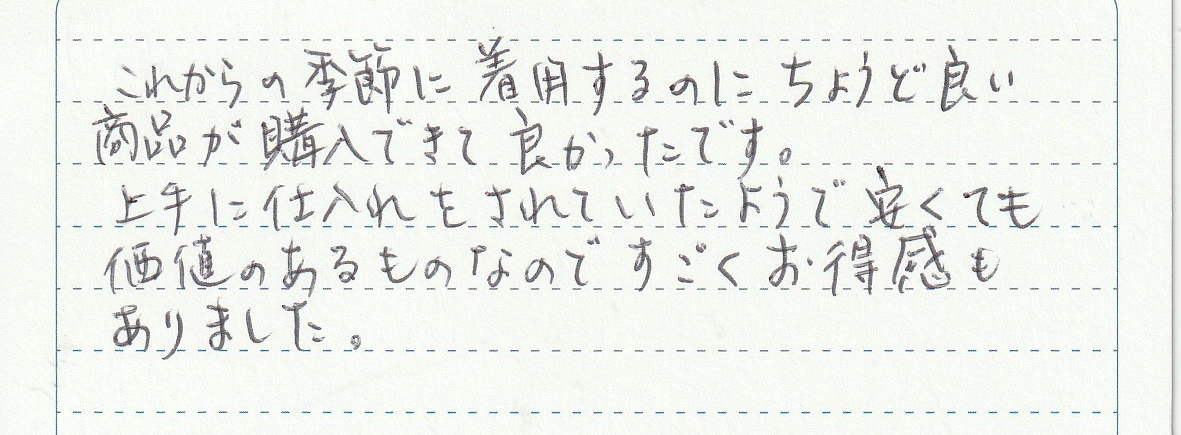 これからの季節に着用するのにちょうど良い
商品が購入できて良かったです。
上手に仕入れをされていたようで安くても
価値のあるものなのですごくお得感も
ありました。